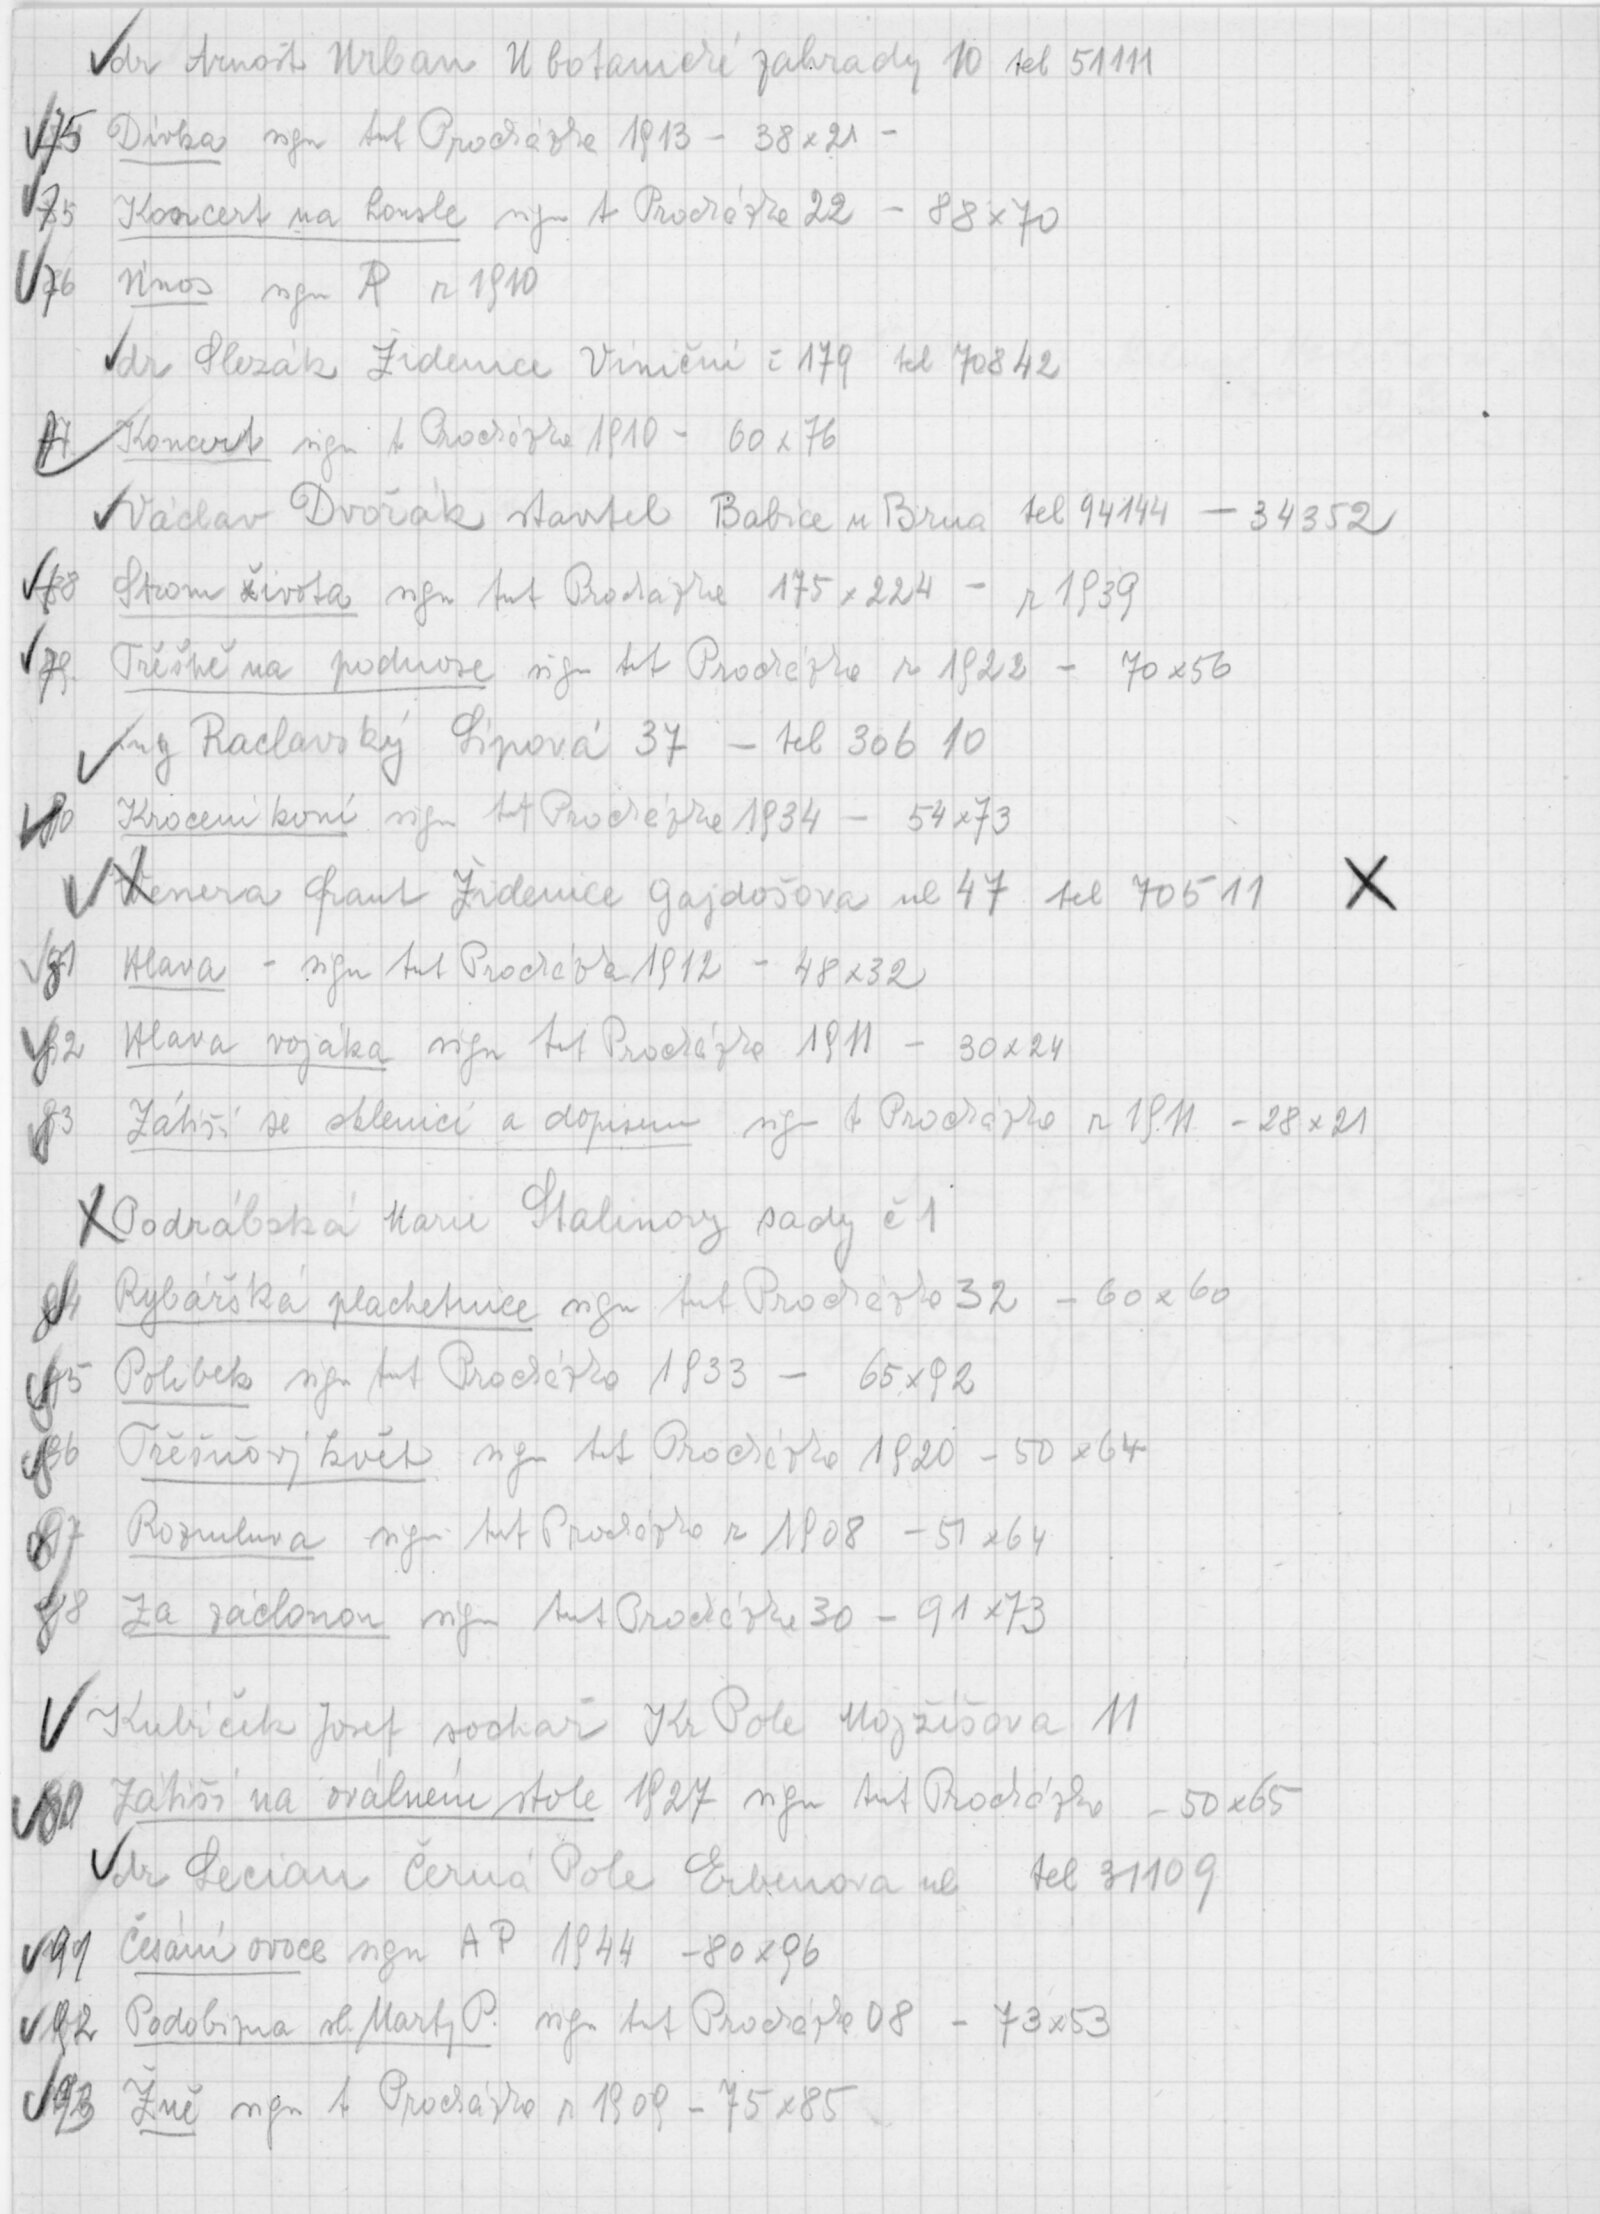 dr Arnošt Urban U botanické zahrady 10 tel 51111
75 Dívka sign tut Procházka 1913 - 38x21 -
75 Koncert na housle sign t Procházka 22 - 88x70
76 Únos sign AP r 1910
dr Slezák Židenice Viniční č 179 tel 70842
77 Koncert sign t Procházka 1910 - 60x76
Václav Dvořák stavitel Babice u Brna tel 94144 - 34352
78 Strom života sign tut Procházka 175x224 - r 1939
79 Třěšně na podnose sign tut Procházka r 1922 - 70x56
ing Raclavský Lipová 37 - tel 306 10
80 Krocení koní sign tut Procházka 1934 - 54x73
Venera Frant Židenice Gajdošova ul 47 tel 705 11 X
81 Hlava - sign tut Procházka 1912 - 48x32
82 Hlava vojáka sign tut Procházka 1911 - 30x24
83 Zátiší se sklenicí a dopisem sign t Procházka r 1911 - 28x21
X Podrábská Marie Stalinovy sady č 1
84 Rybářská plachetnice sign tut Procházka 32 - 60x60
85 Polibek sign tut Procházka 1933 - 65x92
86 Třěšňový květ sign tut Procházka 1920 - 50x64
87 Rozmluva sign tut Procházka r 1908 - 51x64
88 Za záclonou sign tut Procházka 30 - 91x73
Kubíček Josef sochař Kr Pole Mojžíšova 11
Zátiší na oválném stole 1927 sign tut Procházka - 50x65
dr Lecian Černá Pole Erbenova ul tel 31109
91 Česání ovoce sign AP 1944 - 80x96
92 Podobizna sl. Marty P. sign tut Procházka 08 - 73x53
93 Žně sign t Procházka r 1909 - 75x85